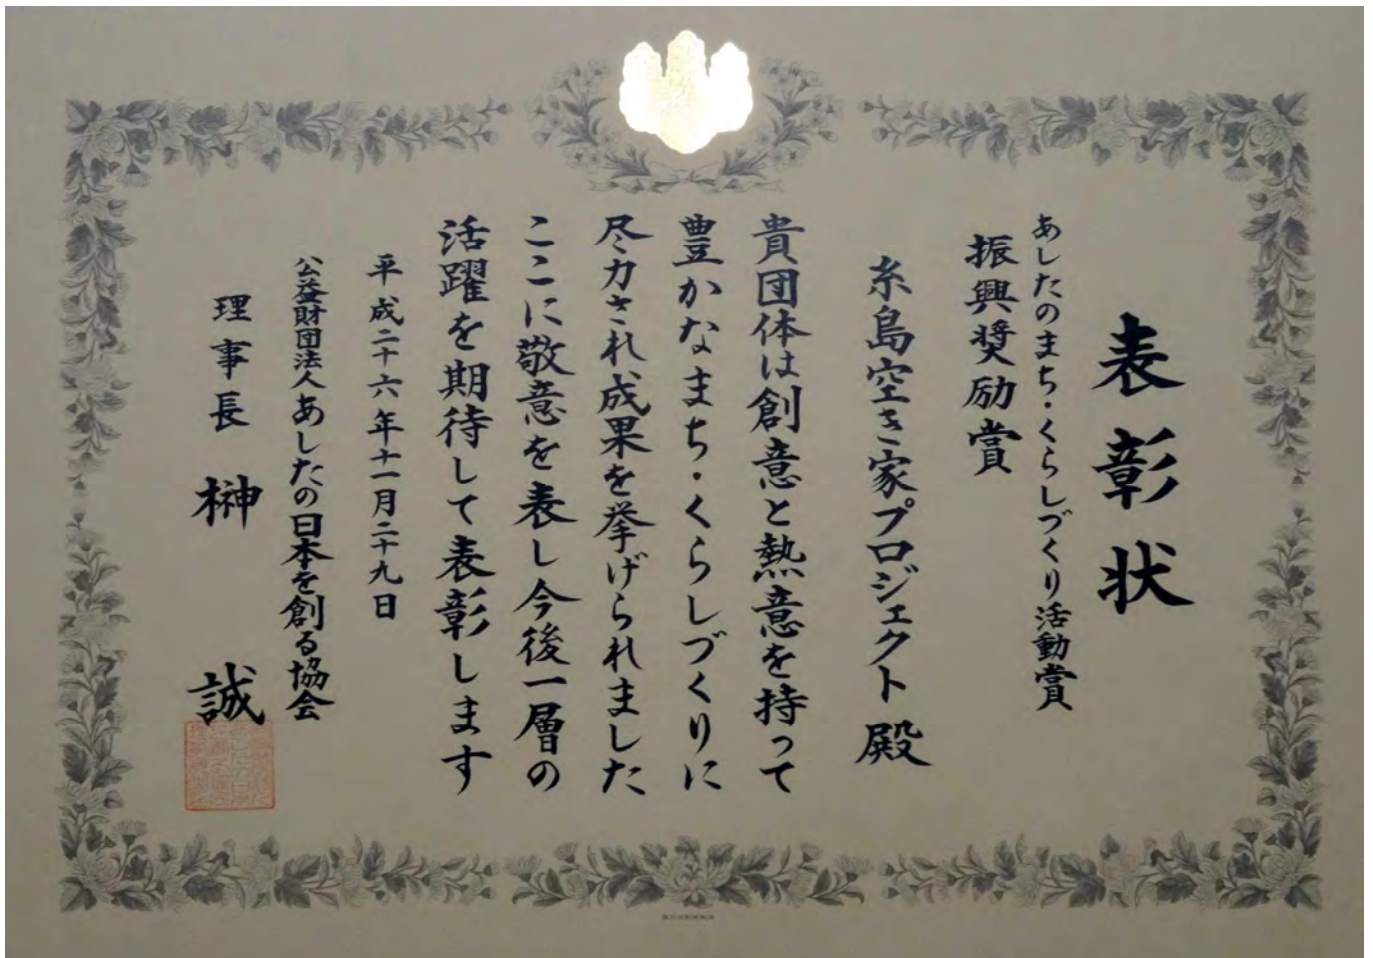 表彰状
あしたのまち・くらしづくり活動賞
振興奨励賞
糸島空き家プロジェクト 殿
貴団体は創意と熱意を持って
豊かなまち・くらしづくりに
尽力され成果を挙げられました
ここに敬意を表し今後一層の
活躍を期待して表彰します
平成二十六年十一月二十九日
公益財団法人あしたの日本を創る協会
理事長 榊 誠